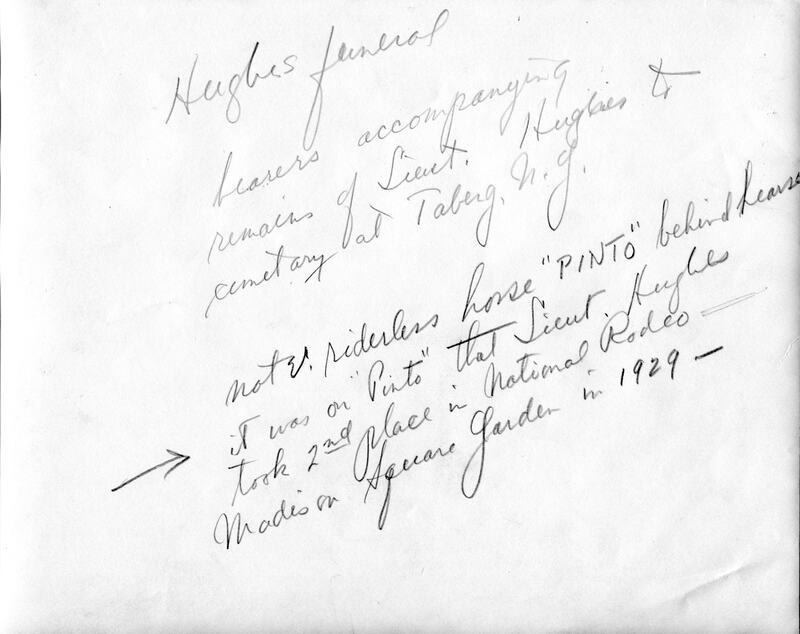 Hughes funeral
bearers accompanying
remains of Lieut. Hughes to
cemetary at Taberg, N.Y.
note: riderless horse "PINTO" behind hearse
it was on "Pinto" that Lieut. Hughes
took 2nd place in National Rodeo —
Madison Square Garden in 1929 —